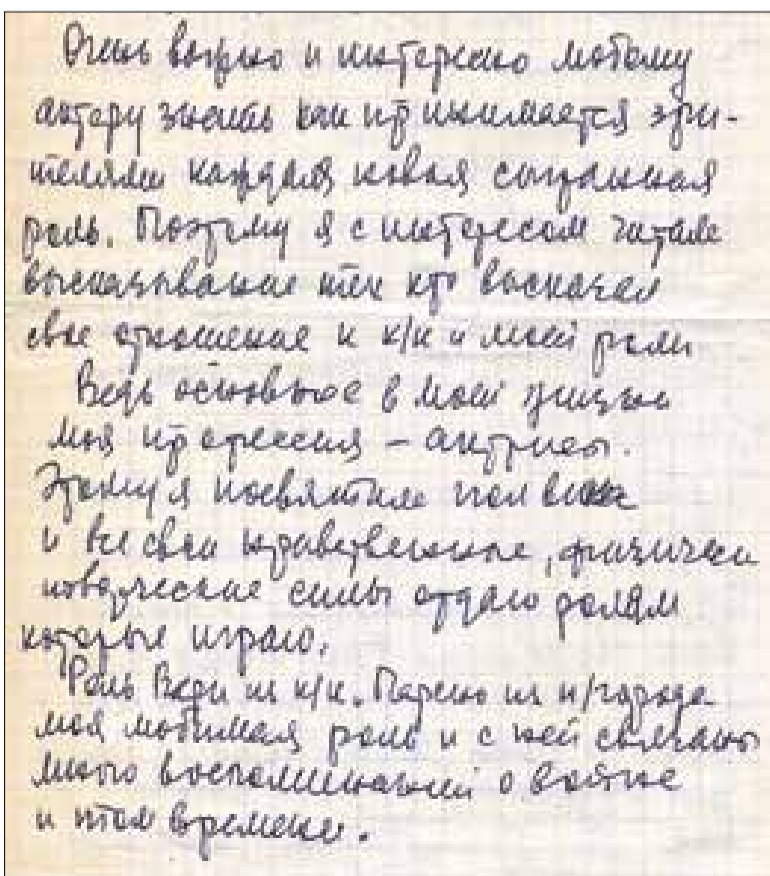 Очень важно и интересно любому
актеру знать как принимается зри-
телями каждая новая сыгранная
роль. Поэтому я с интересом читала
высказывание тех кто высказал
свое отношение к к/к и моей роли
Ведь основное в моей жизни
моя профессия – актрисы.
Этому я посвятила пол века
и все свои нравственные, физически
творческие силы отдаю ролям
которые играю.
Роль Веры из к/к. Парень из н/города
моя любимая роль и с ней связаны
много воспоминаний о войне
и том времени.